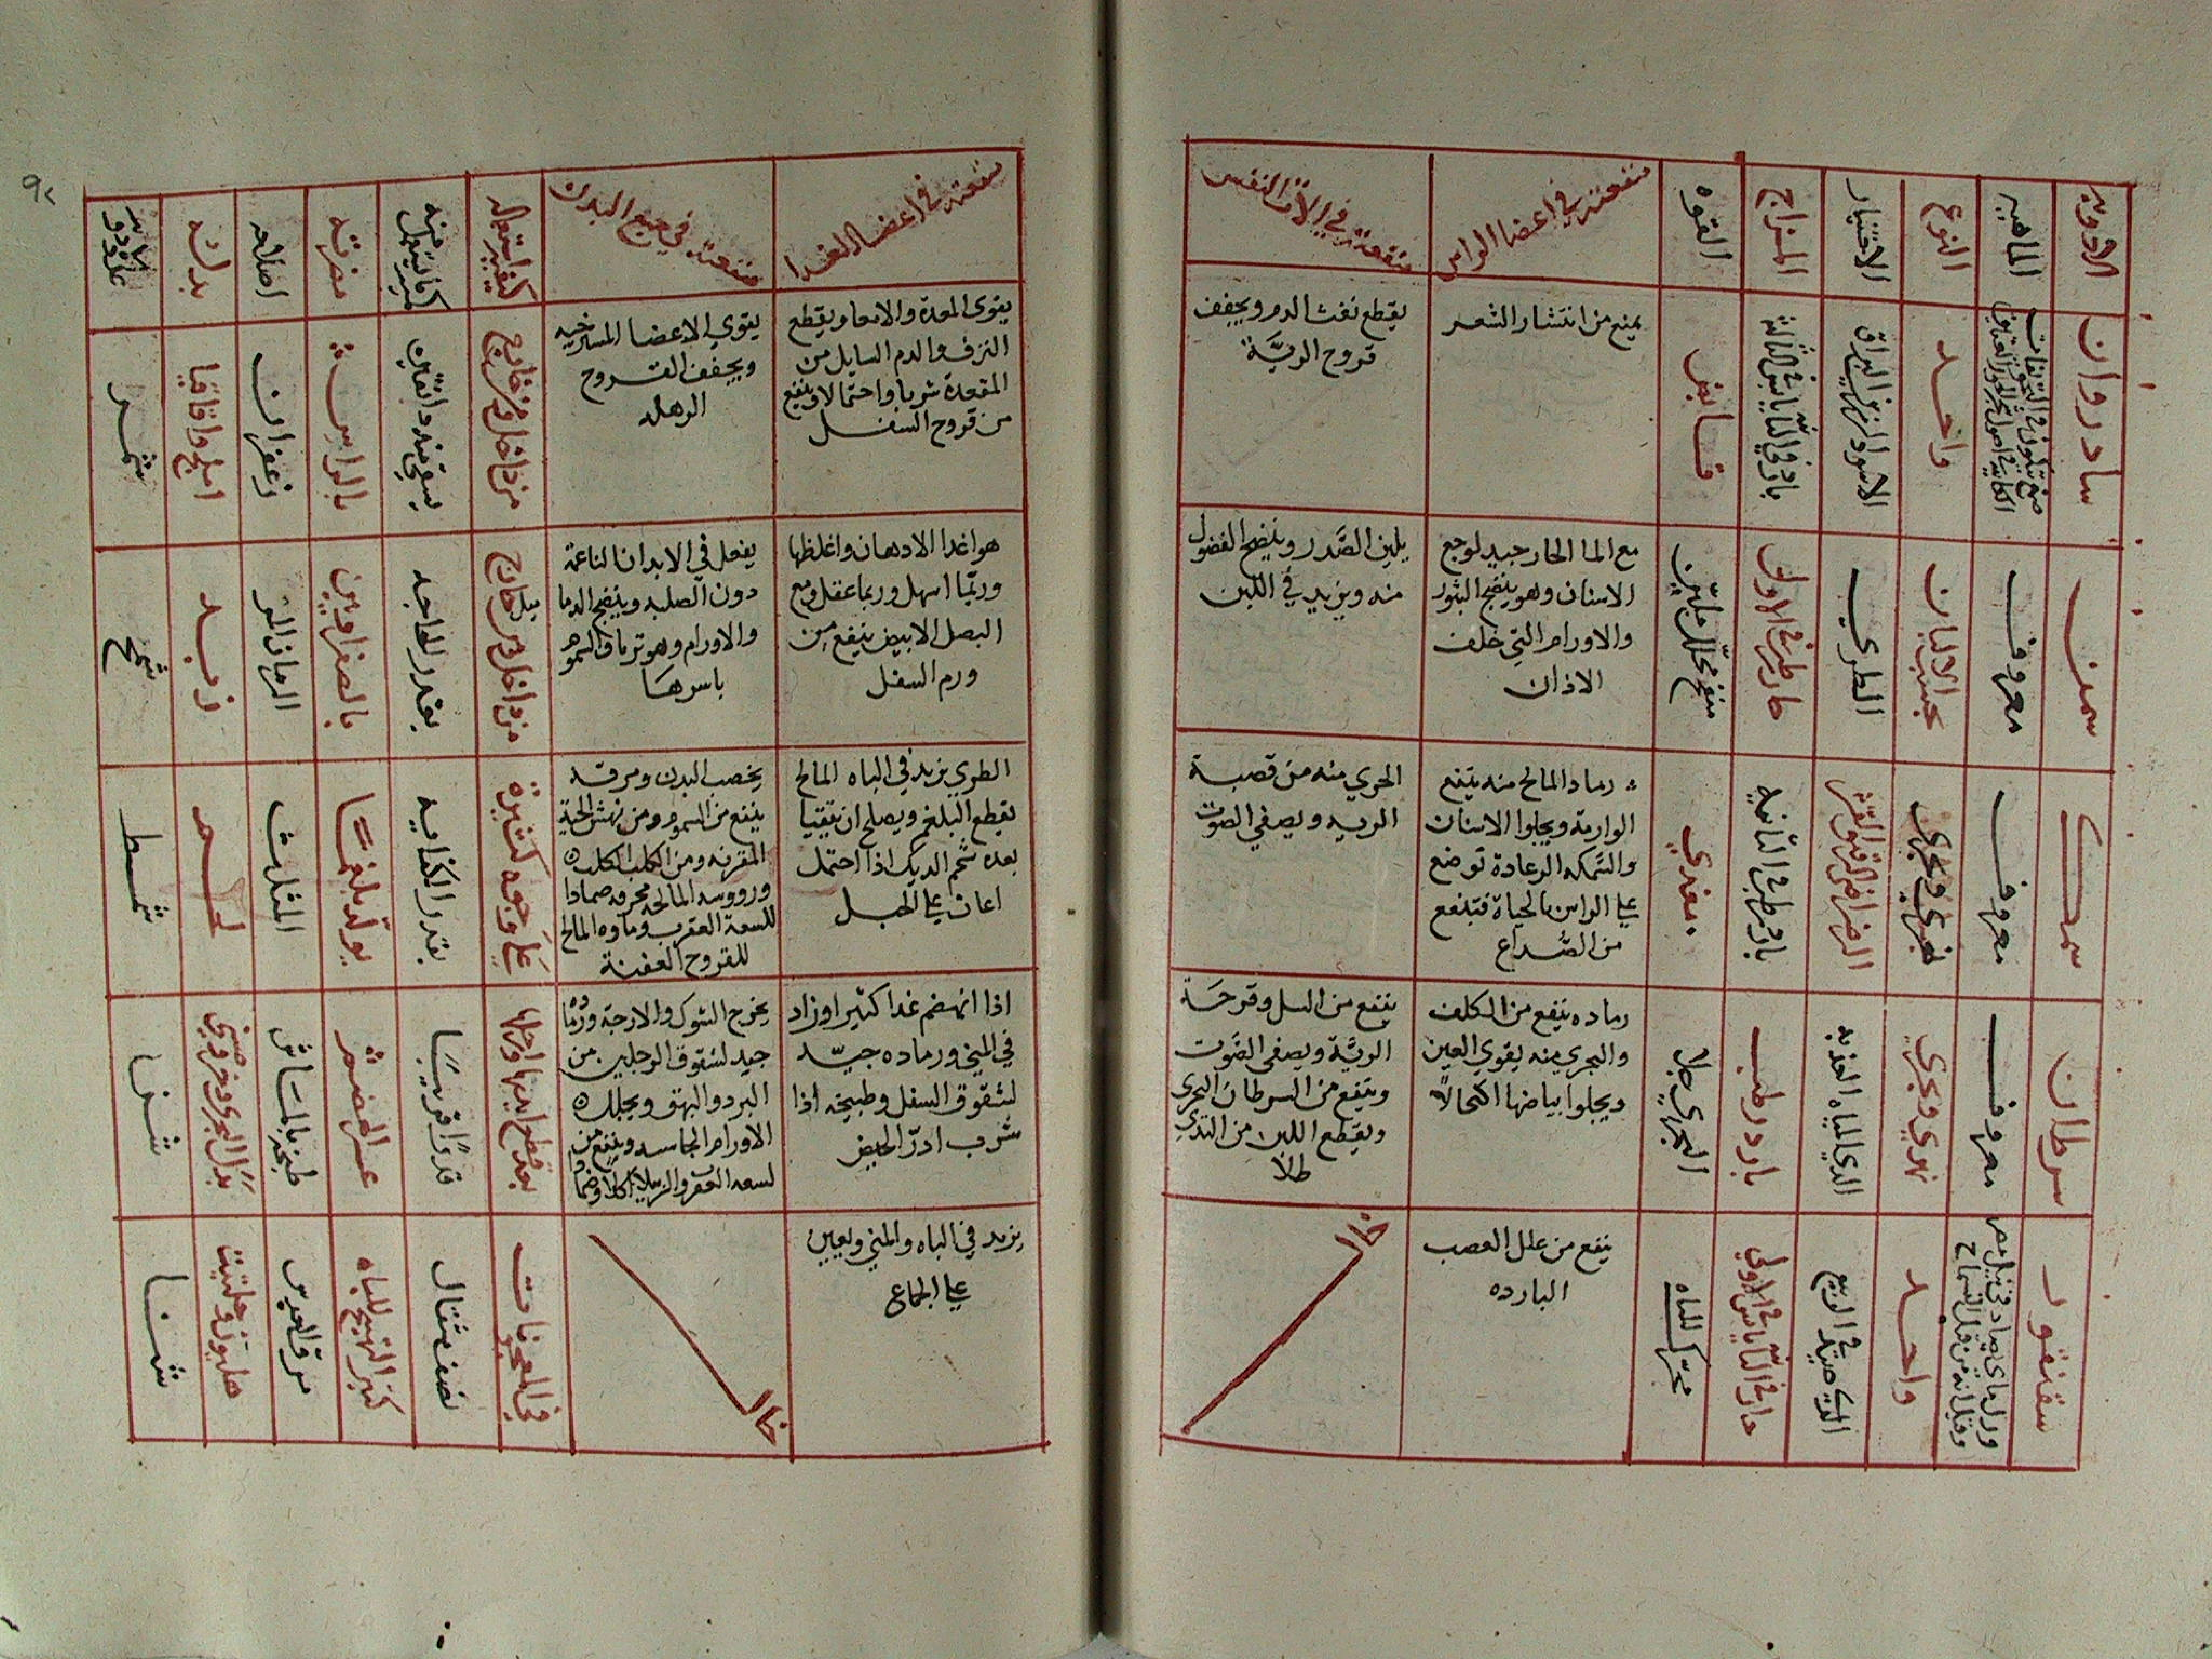 الادويه
الماهيه
النوع
الاختيار
المزاج
القوه
منفعته في اعضا الراس
منفعته في الات النفس
سادروان
واحد
الاسود الزنهي البراق
بارد في الثانيه يابس في الثالثه
قابض
يمنع من انتشار الشعر
يقطع نفث الدم ويجفف
قروح الريّة
سمن
معروف
بحسب الالبان
الطري
حار رطب في الاولى
منضج محلل ملين
مع الما الحار جيد لوجع
الاسنان وهو ينضج البثور
والاورام التي خلف
الاذان
يلين الصّدر وينضج الفضول
منه ويزيد في اللبن
سمك
معروف
نهري وبحري
بارد رطب في الثانيه
مغذي
رماد المالح منه ينفع
الوارمة ويجلوا الاسنان
والسّمكه الرعادة توضع
على الراس بالحياة فتنفع
من الصّداع
الجري منه من قصبة
الريه ويصفي الصوت
سرطان
معروف
نهري وبحري
الذي المياه العذبه
بارد رطب
البحري جلا
رماده ينفع من الكلف
والبحري منه يقوي العين
ويجلوا بياضها اكتحالاً
ينفع من السل وقرحة
الريّة ويصفي الصّوت
وينفع من السرطان البحري
ويقطع اللبن من الثدي
طلاً
سقنقور
ورل ماي يصاد في نيل مصر
وقيل انه من نسل التمساح
واحد
الذي صيد في الربيع
حار في الثانيه يابس في الاولي
محرّك للباه
ينفع من علل العصب
البارده
خال
٩٢
منفعته في اعضا الغدا
منفعته في جميع البدن
كيفية استعماله
كمية ما يستعمل منه
مضرته
اصلاحه
بدله
يقوي المعدة والامعا ويقطع
النزف والدم السايل من
المقعدة شربا واحتمالا وينفع
من قروح السفل
يقوي الاعضا المسترخيه
ويجفف القروح
الرهله
من داخل ومن خارج
يسقى منه دانقين
بالراس
زعفران
املج واقاقيا
شمر
هو اغدا الادهان واغلظها
وربّما اسهل وربما عقل ومع
البصل الابيض ينفع من
ورم السفل
يفعل في الابدان الناعمة
دون الصلبه وينضج الدما
والاورام وهو ترياق السموم
باسرها
من داخل ومن خارج
بقدر الحاجه
بالصفراويين
الرمان المز
زبد
شمح
الطري يزيد في الباه المالح
يقطع البلغم ويصلح ان يتقيا
بعده شحم الديك اذا احتمل
اعان على الحبل
يخصب البدن ومرقه
ينفع من السموم ومن نهش الحية
المقرنه ومن الكلب الكلب
ورووسه المالحه محرقه ضمادا
للسعة العقرب وماوه المالح
للقروح العفنة
على وجوه كثيرة
بقدر الكفايه
يولّد بلغمًا
المثلث
لحم
شمط
اذا انهضم غدا كثيرا وزاد
في المني ورماده جيّد
لشقوق السفل وطبيخه اذا
شرب ادرّ الحيض
يخرج الشوك والازجة
جيد لشقوق الرجلين من
البرد والبهق ويحلل
الاورام الجاسيه وينفع من
لسعه العقرب والرتيلا اكلا وضمادا
بعد قطع ايديها وارجلها
عسر الهضم
طبخه بالماش
شنا
يزيد في الباه والمني ويعين
على الجماع
خال
في المعجونات
نصف مثقال
كثير التهييج للباه
مرق العدس
هليون وحلتيت
شنا